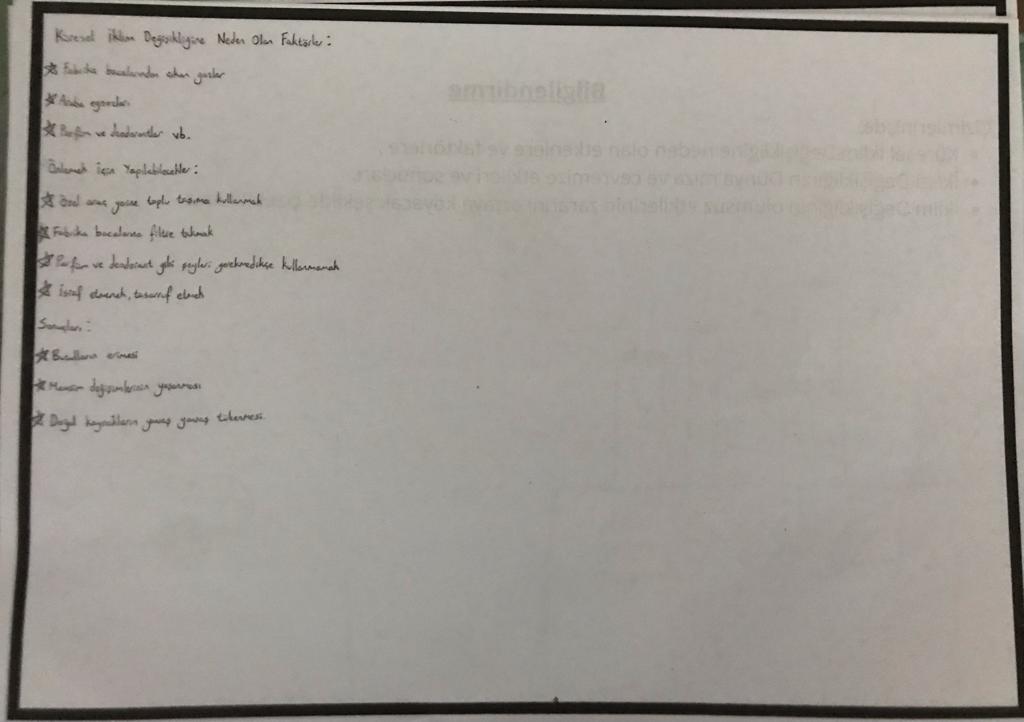 Küresel İklim Değişikliğine Neden Olan Faktörler:
☆ Fabrika bacalarından çıkan gazlar
☆ Araba egzozları
☆ Parfüm ve deodorantlar vb.
Önlemek İçin Yapılabilecekler:
☆ Özel araç yerine toplu taşıma kullanmak
☆ Fabrika bacalarına filtre takmak
☆ Parfüm ve deodorant gibi şeyleri gerekmedikçe kullanmamak
☆ İsraf etmemek, tasarruf etmek
Sonuçları:
☆ Buzulların erimesi
☆ Mevsim değişimlerinin yaşanması
☆ Doğal kaynakların yavaş yavaş tükenmesi.
Bilgilendirme
Çizimlerinizde;
• Küresel İklim Değişikliğine neden olan etkenlere ve faktörlere,
• İklim Değişikliğinin Dünyamıza ve çevremize etkileri ve sonuçları,
• İklim Değişikliğinin olumsuz etkilerinin zararını ortaya koyacak şekilde